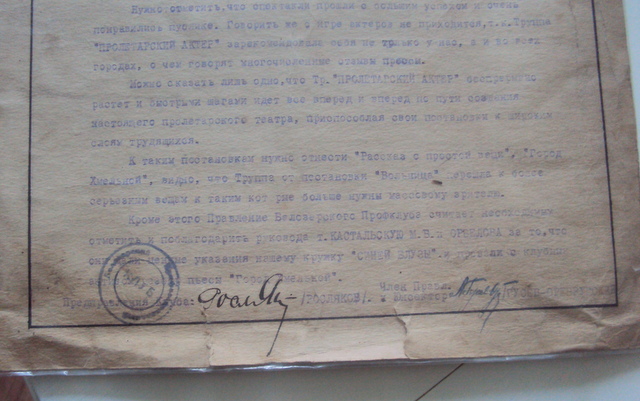 Нужно отметить, что спектакли прошли с большим успехом и очень
понравились публике. Говорить же о игре актеров не приходится, т.к. Труппа
"ПРОЛЕТАРСКИЙ АКТЕР" зарекомендовала себя не только у нас, а и по всех
городах, о чем говорят многочисленные отзывы прессы.
Можно сказать лишь одно, что Тр. "ПРОЛЕТАРСКИЙ АКТЕР" беспрерывно
растет и быстрыми шагами идет все вперед и вперед по пути создания
настоящего пролетарского театра, приспособляя свои постановки к широким
слоям трудящихся.
К таким постановкам нужно отнести "Рассказ о простой вещи", "Город
Хмельной", видно, что Труппа от постановки "Вольница" перешла к более
серьезным вещам и таким кот рые больше нужны массовому зрителю.
Кроме этого Правление Белозерского Профклуба считает необходимым
отметить и поблагодарить руковода т. КАСТАЛЬСКУЮ М.В. и ОРЕЛДОВА за то, что
ценные указания нашему кружку "СИНЕЙ БЛУЗЫ"
пьесы "Город Хмельной".
Член Правл.
Клуба: /РОСЛЯКОВ/. и